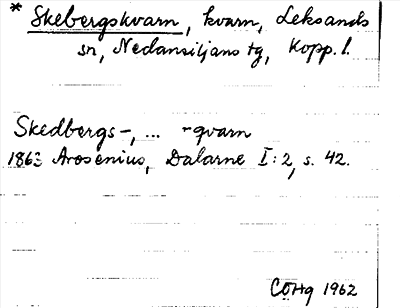 * Skebergskvarn, kvarn, Leksands
sn, Nedansiljans tg, Kopp. l.
Skedbergs-, ... -qvarn
1863 Arosenius, Dalarne I:2, s. 42.
CÖHg 1962